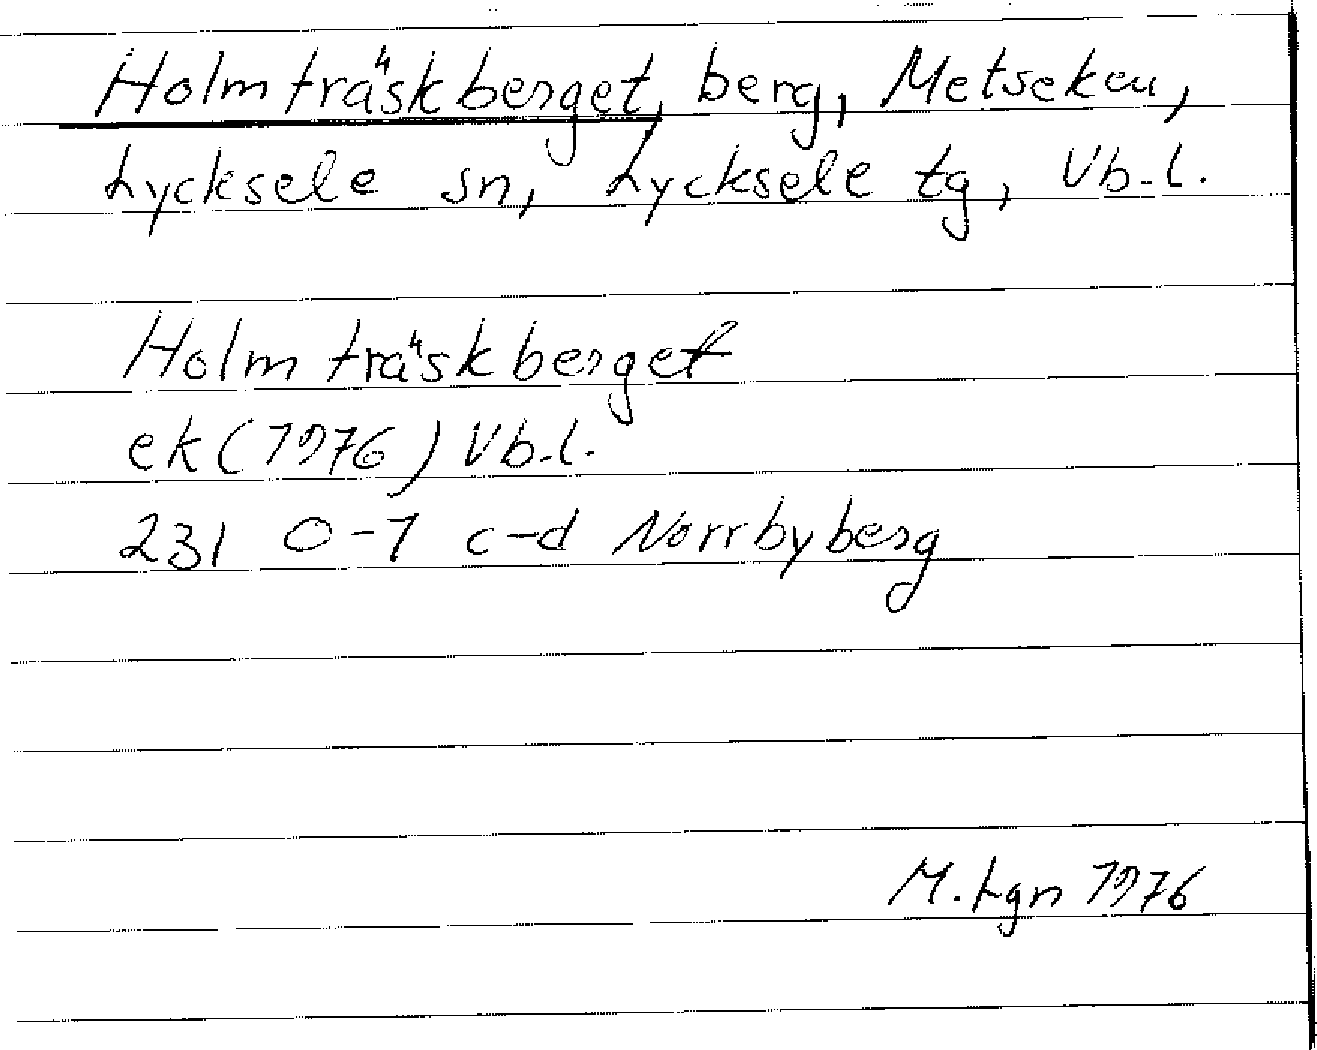 Holmträskberget, berg, Metseken,
Lycksele sn, Lycksele tg, Vb.l.
Holmträskberget
ek (1976) Vb.l.
231 0-1 c-d Norrbyberg
M. Lgn 1976